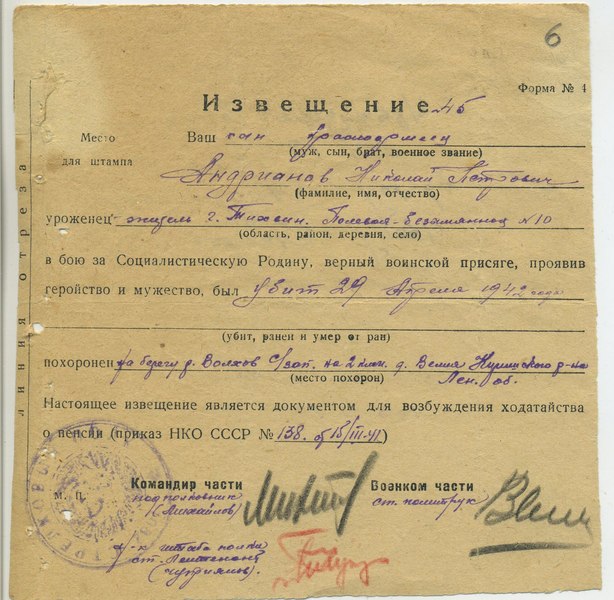 6
Форма № 4
Извещение 45
Место для штампа
Ваш сын красноармеец
(муж, сын, брат, военное звание)
Андрианов Николай Петрович
(фамилие, имя, отчество)
уроженец житель г. Тихвин. Полевая-Безымянная №10
(область, район, деревня, село)
в бою за Социалистическую Родину, верный воинской присяге, проявив
геройство и мужество, был убит 29 Апреля 1942 года
(убит, ранен и умер от ран)
похоронен на берегу р. Волхов на 2 клм. д.
(место похорон)
Лен. об.
Настоящее извещение является документом для возбуждения ходатайства
о пенсии (приказ НКО СССР № 138
М. П.
Командир части
Военком части
подполковник
ст. политрук
(Михайлов)
штаба полка
ст. лейтенант
линия отреза